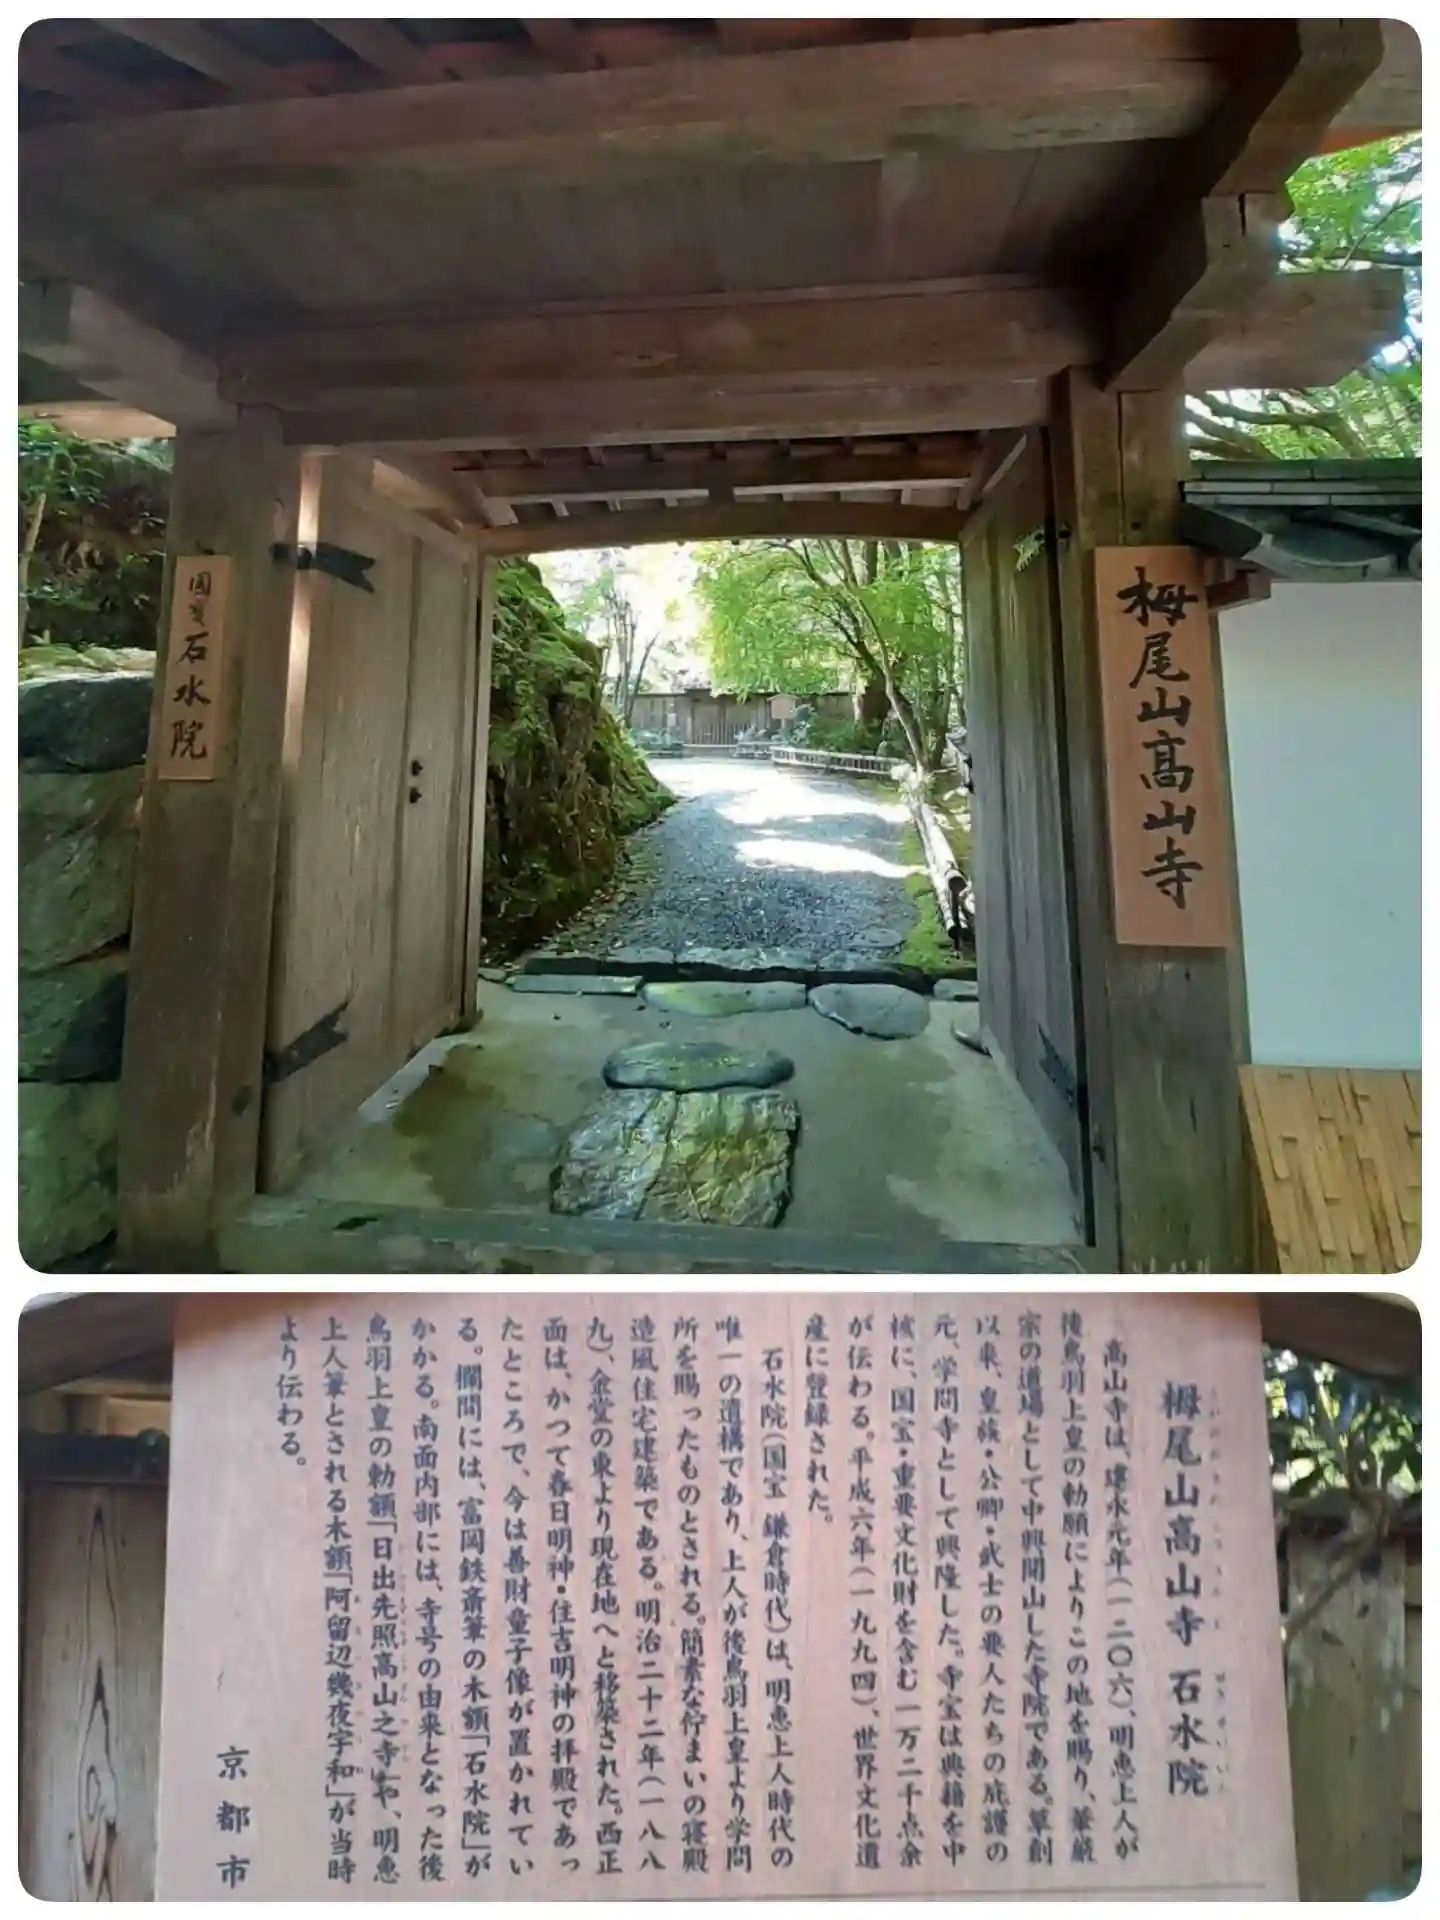 栂尾山高山寺
國寳石水院
栂尾山高山寺 石水院
高山寺は、建永元年(一二〇六)、明恵上人が
後鳥羽上皇の勅願によりこの地を賜り、華厳
宗の道場として中興開山した寺院である。草創
以来、皇族・公卿・武士の要人たちの庇護の
元、学問寺として興隆した。寺宝は典籍を中
核に、国宝・重要文化財を含む一万二千点余
が伝わる。平成六年(一九九四)、世界文化遺
産に登録された。
石水院(国宝 鎌倉時代)は、明恵上人時代の
唯一の遺構であり、上人が後鳥羽上皇より学問
所を賜ったものとされる。簡素な佇まいの寝殿
造風住宅建築である。明治二十二年(一八八
九)、金堂の東より現在地へと移築された。西正
面は、かつて春日明神・住吉明神の拝殿であっ
たところで、今は善財童子像が置かれてい
る。欄間には、富岡鉄斎筆の木額「石水院」が
かかる。南面内部には、寺号の由来となった後
鳥羽上皇の勅額「日出先照高山之寺」や、明恵
上人筆とされる木額「阿留辺幾夜宇和」が当時
より伝わる。
京都市